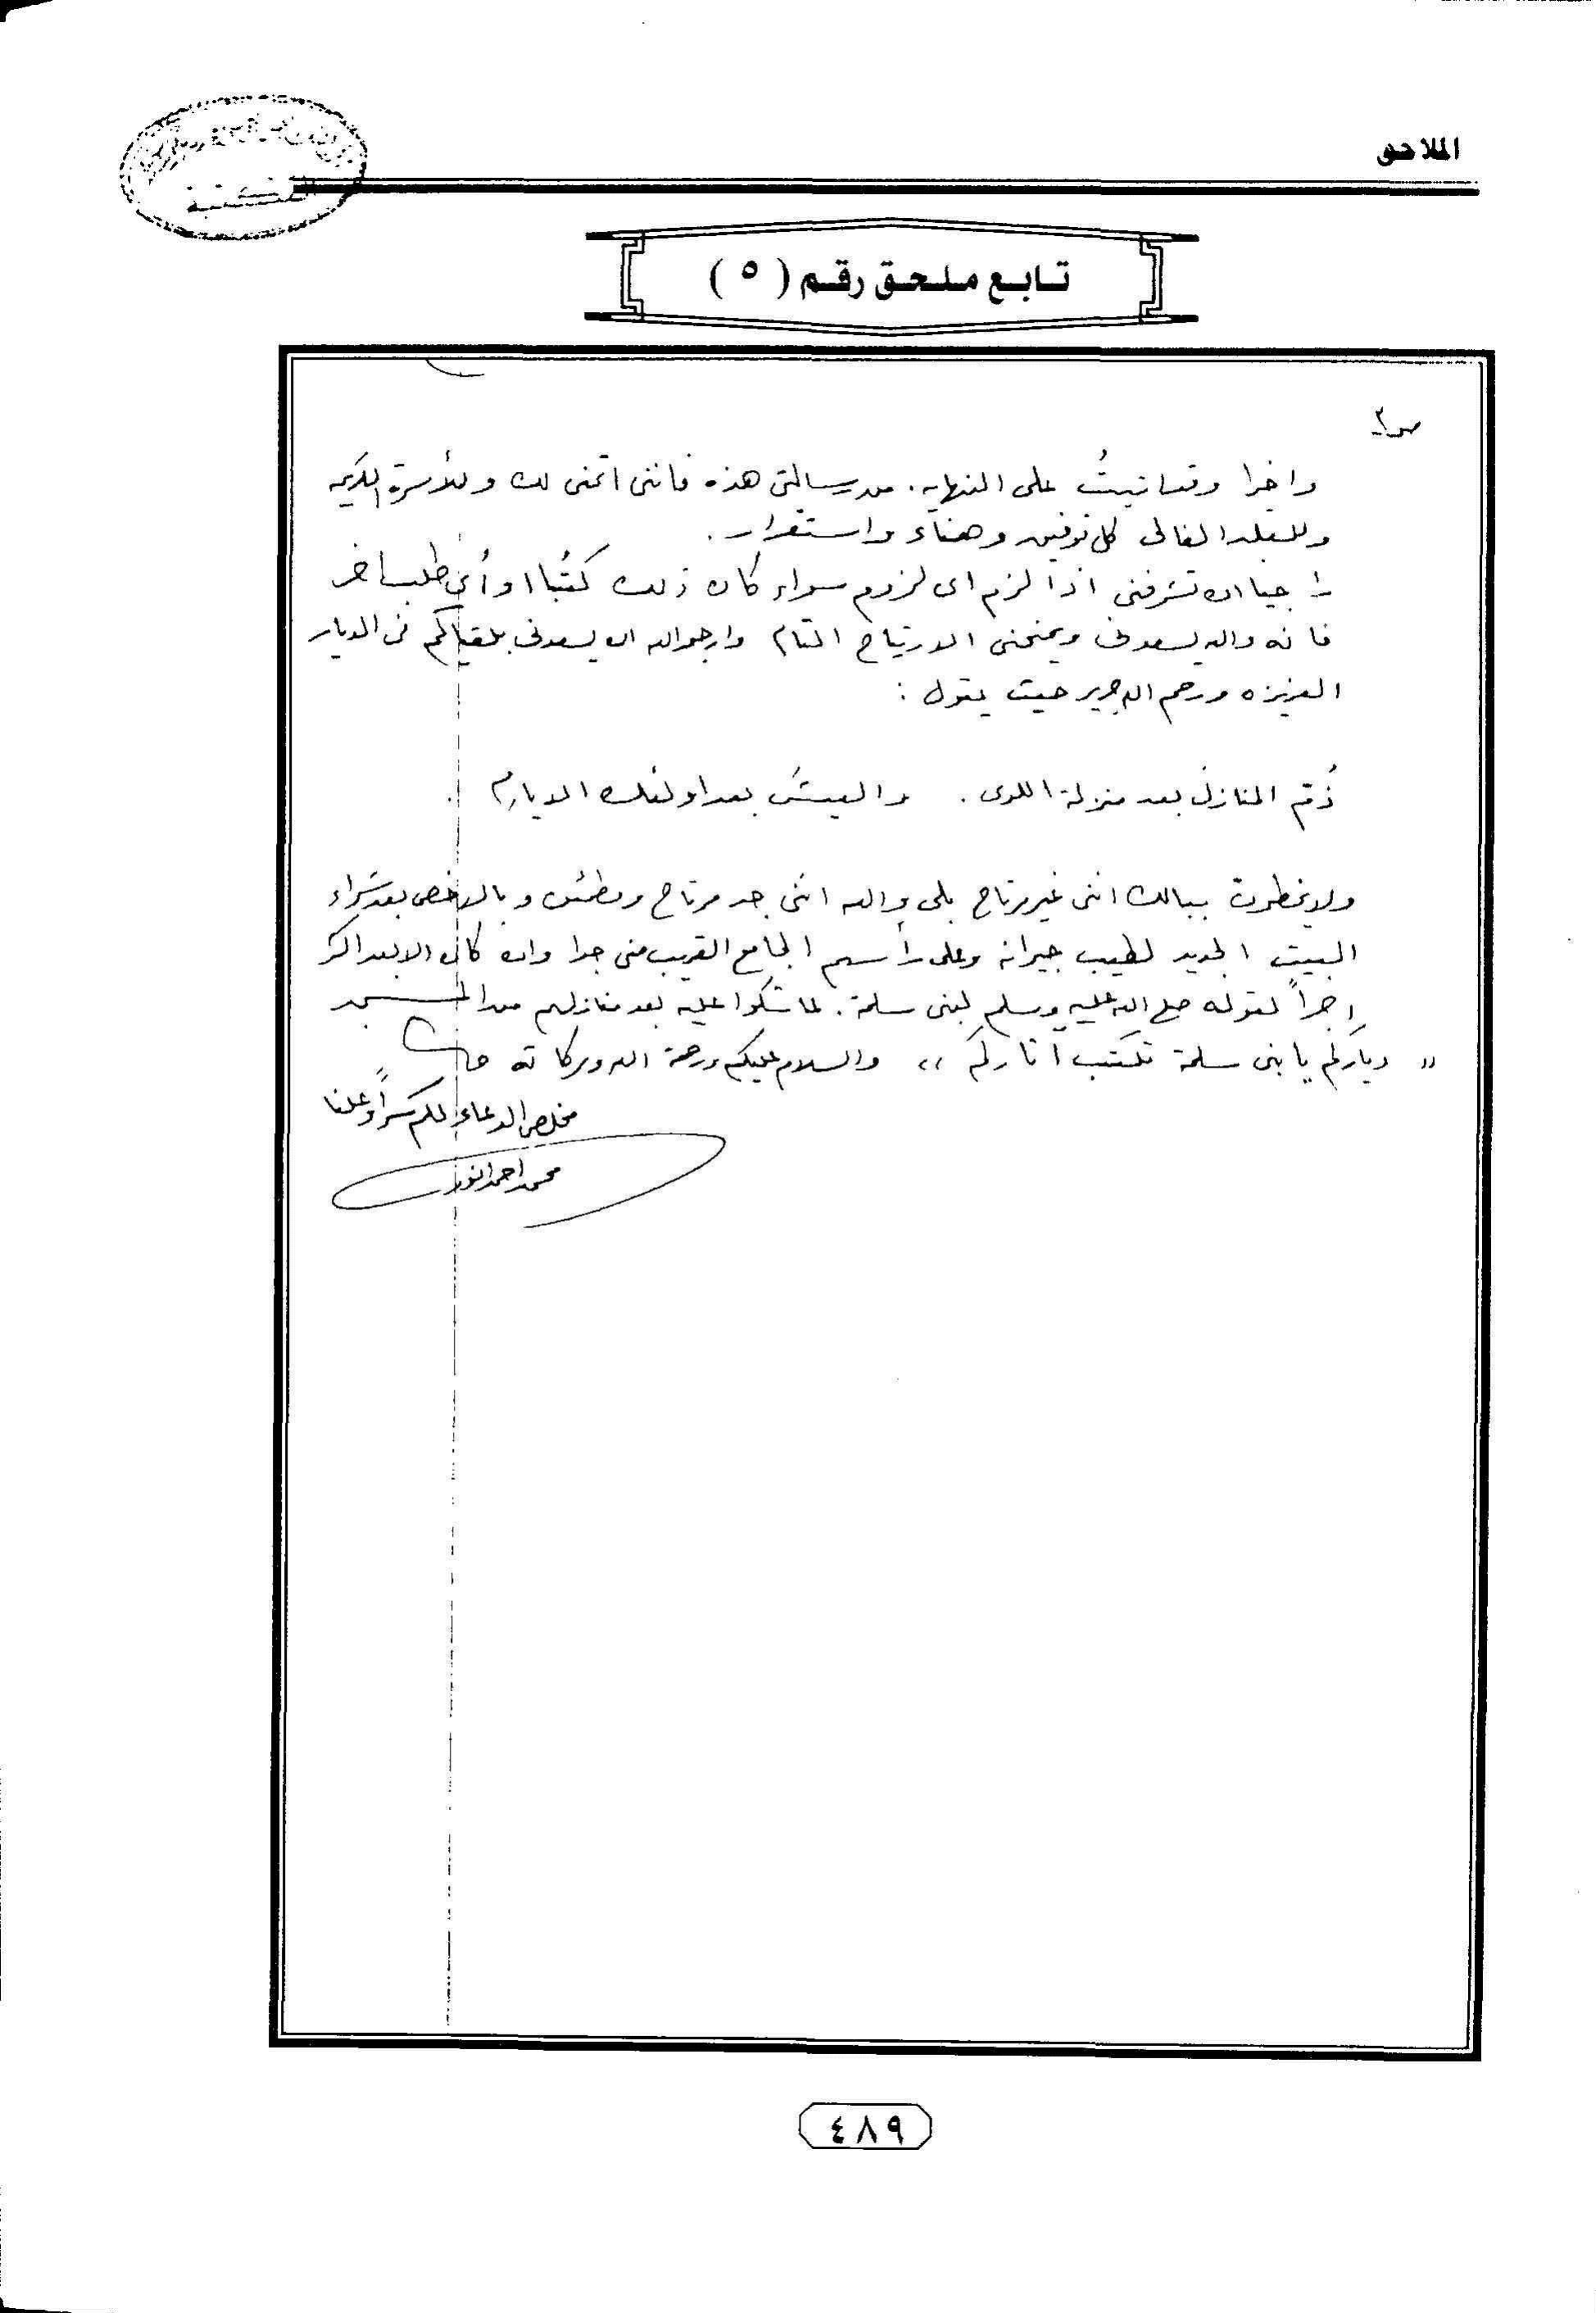 الملاحق
المكتبة
تابع ملحق رقم ( ٥ )
ص٣
واخيرا وقد اتيتُ على النهايه. من رسالتى هذه فاننى اتمنى لك وللأسرة الكريمه
وللبلد الغالى كل توفيق وهناء واستقرار.
راجيا ان تشرفنى اذا لزم اى لزوم سواء كان ذلك كتبًا او أى طلب اخر
فانه والله يسعدنى ويمنحنى الارتياح التام وارجو الله ان يسعدنى بلقياكم فى الديار
العزيزه ورحم الله جرير حيث يقول :
ذُم المنازل بعد منزلة اللوى . والعيشَ بعد اولئك الايامِ .
ولا يخطرن ببالك اننى غير مرتاح بلى والله اننى جد مرتاح ومطمئن وبالاخص بعد شراء
البيت الجديد لطيب جيرانه وعلى رأسهم الجامع القريب منى جدا وان كان الابعد اكثر
اجراً لقوله صلى الله عليه وسلم لبنى سلمة. لما شكوا عليه بعد منازلهم من المسجد
" دياركم يا بنى سلمة تكتب آثاركم ،، والسلام عليكم ورحمة الله وبركاته
مخلص الدعاء لكم سراً وعلنا
محمد احمد النور
٤٨٩